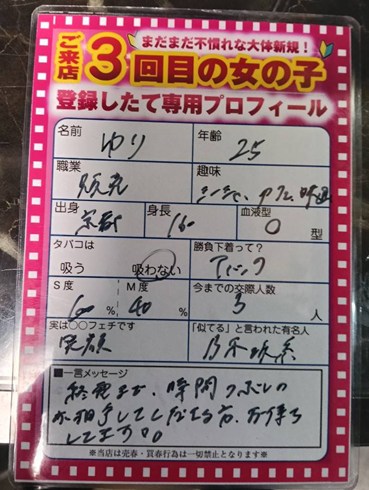 まだまだ不慣れな大体新規！
ご来店3回目の女の子
登録したて専用プロフィール
名前 ゆり 年齢 25
職業 販売 趣味 シーシャ、カフェ、
出身 京都 身長 160 血液型 O型
タバコは 勝負下着って？
吸う 吸わない
S度 M度 今までの交際人数
60% 40% 3人
実は〇〇フェチです 「似てる」と言われた有名人
笑顔 乃木坂系
■一言メッセージ
終電まで、時間つぶしの
お相手してくださる方、お待ち
してます
※当店は売春・買春行為は一切禁止となります※